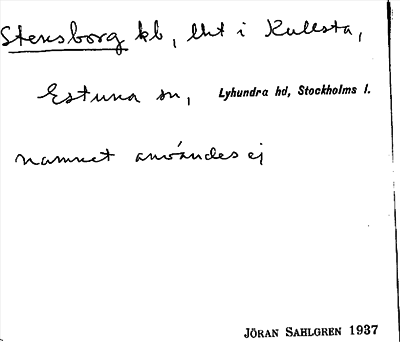 Stensborg kb, lht i Kullsta,
Estuna sn, Lyhundra hd, Stockholms l.
namnet användes ej
JÖRAN SAHLGREN 1937